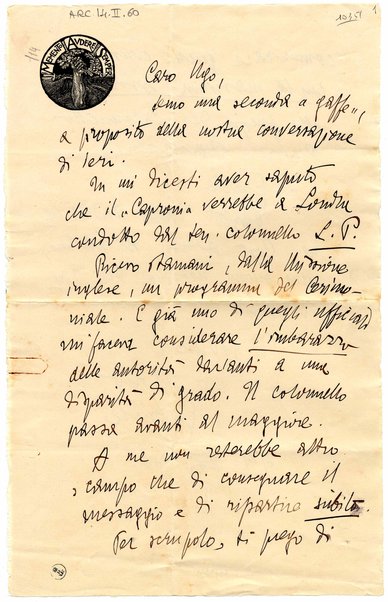 ARC 14. II. 60
MEMENTO AVDERE SEMPER
Caro Ugo,
temo una seconda "gaffe",
a proposito della nostra conversazione
di ieri.
Tu mi dicesti aver saputo
che il "Caproni" verrebbe a Londra
condotto dal ten. colonnello L. P.
Ricevo stamani, dalla Missione
inglese, un programma del Cerimo-
niale. E già uno di quegli ufficiali
mi faceva considerare l'imbarazzo
delle autorità davanti a una
disparità di grado. Il colonnello
passa avanti al maggiore.
A me non resterebbe altro
campo che di consegnare il
messaggio e di ripartire subito.
Per scrupolo, ti prego di